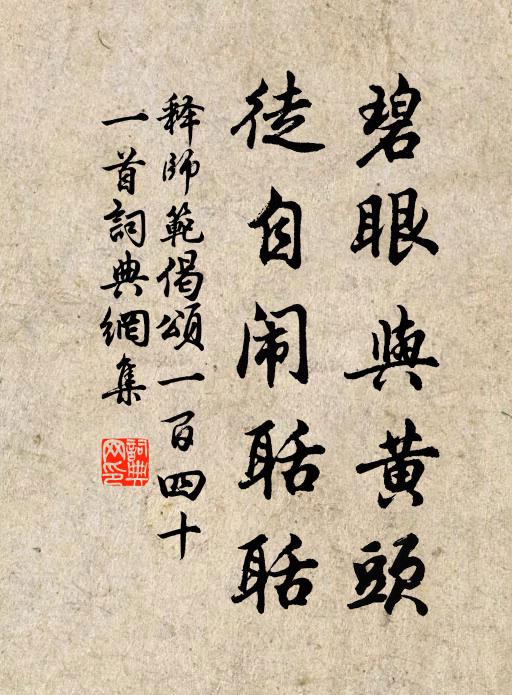 碧眼與黄頭
徒自闹聒聒
释師範偈頌一百四十
一首詞典網集
詞典网印